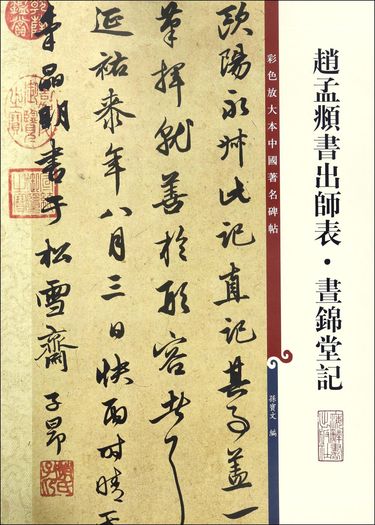 趙孟頫書出師表·晝錦堂記
彩色放大本中國著名碑帖
孫寶文 編
歐陽永叔此記直記其事蓋一
筆揮就善於形容者
延祐泰年八月三日快雨時晴
李晶明書于松雪齋 子昂